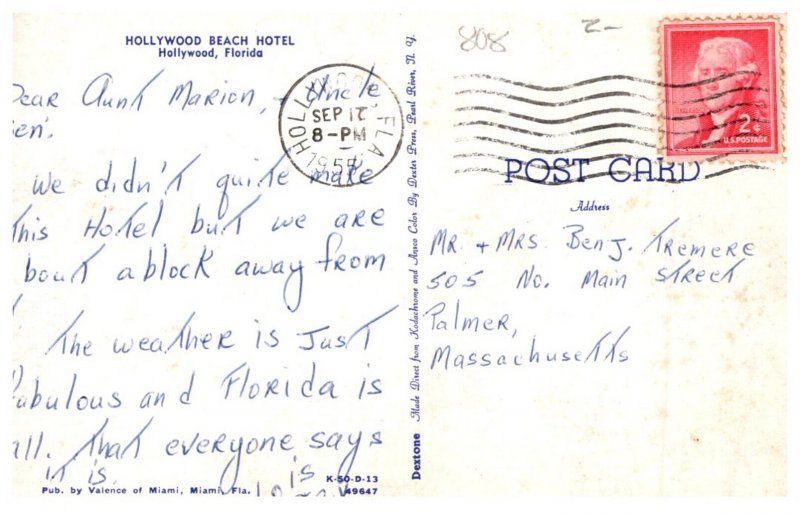 HOLLYWOOD BEACH HOTEL
Hollywood, Florida
Dear Aunt Marion, + Uncle
Ben.
We didn't quite make
this Hotel but we are
bout a block away from
The weather is Just
Fabulous and Florida is
all. that everyone says
it is.
is
K-50-D-13
Pub. by Valence of Miami, Miami, Fla.
49647
HOLLYWOOD, FLA
SEP 17
8-PM
1955
Dextone Made Direct from Kodachrome and Ansco Color By Dexter Press, Pearl River, N. Y.
808
2-
2¢
U.S. POSTAGE
POST CARD
Address
MR. + MRS. Benj. Tremere
505 No. Main Street
Palmer,
Massachusetts